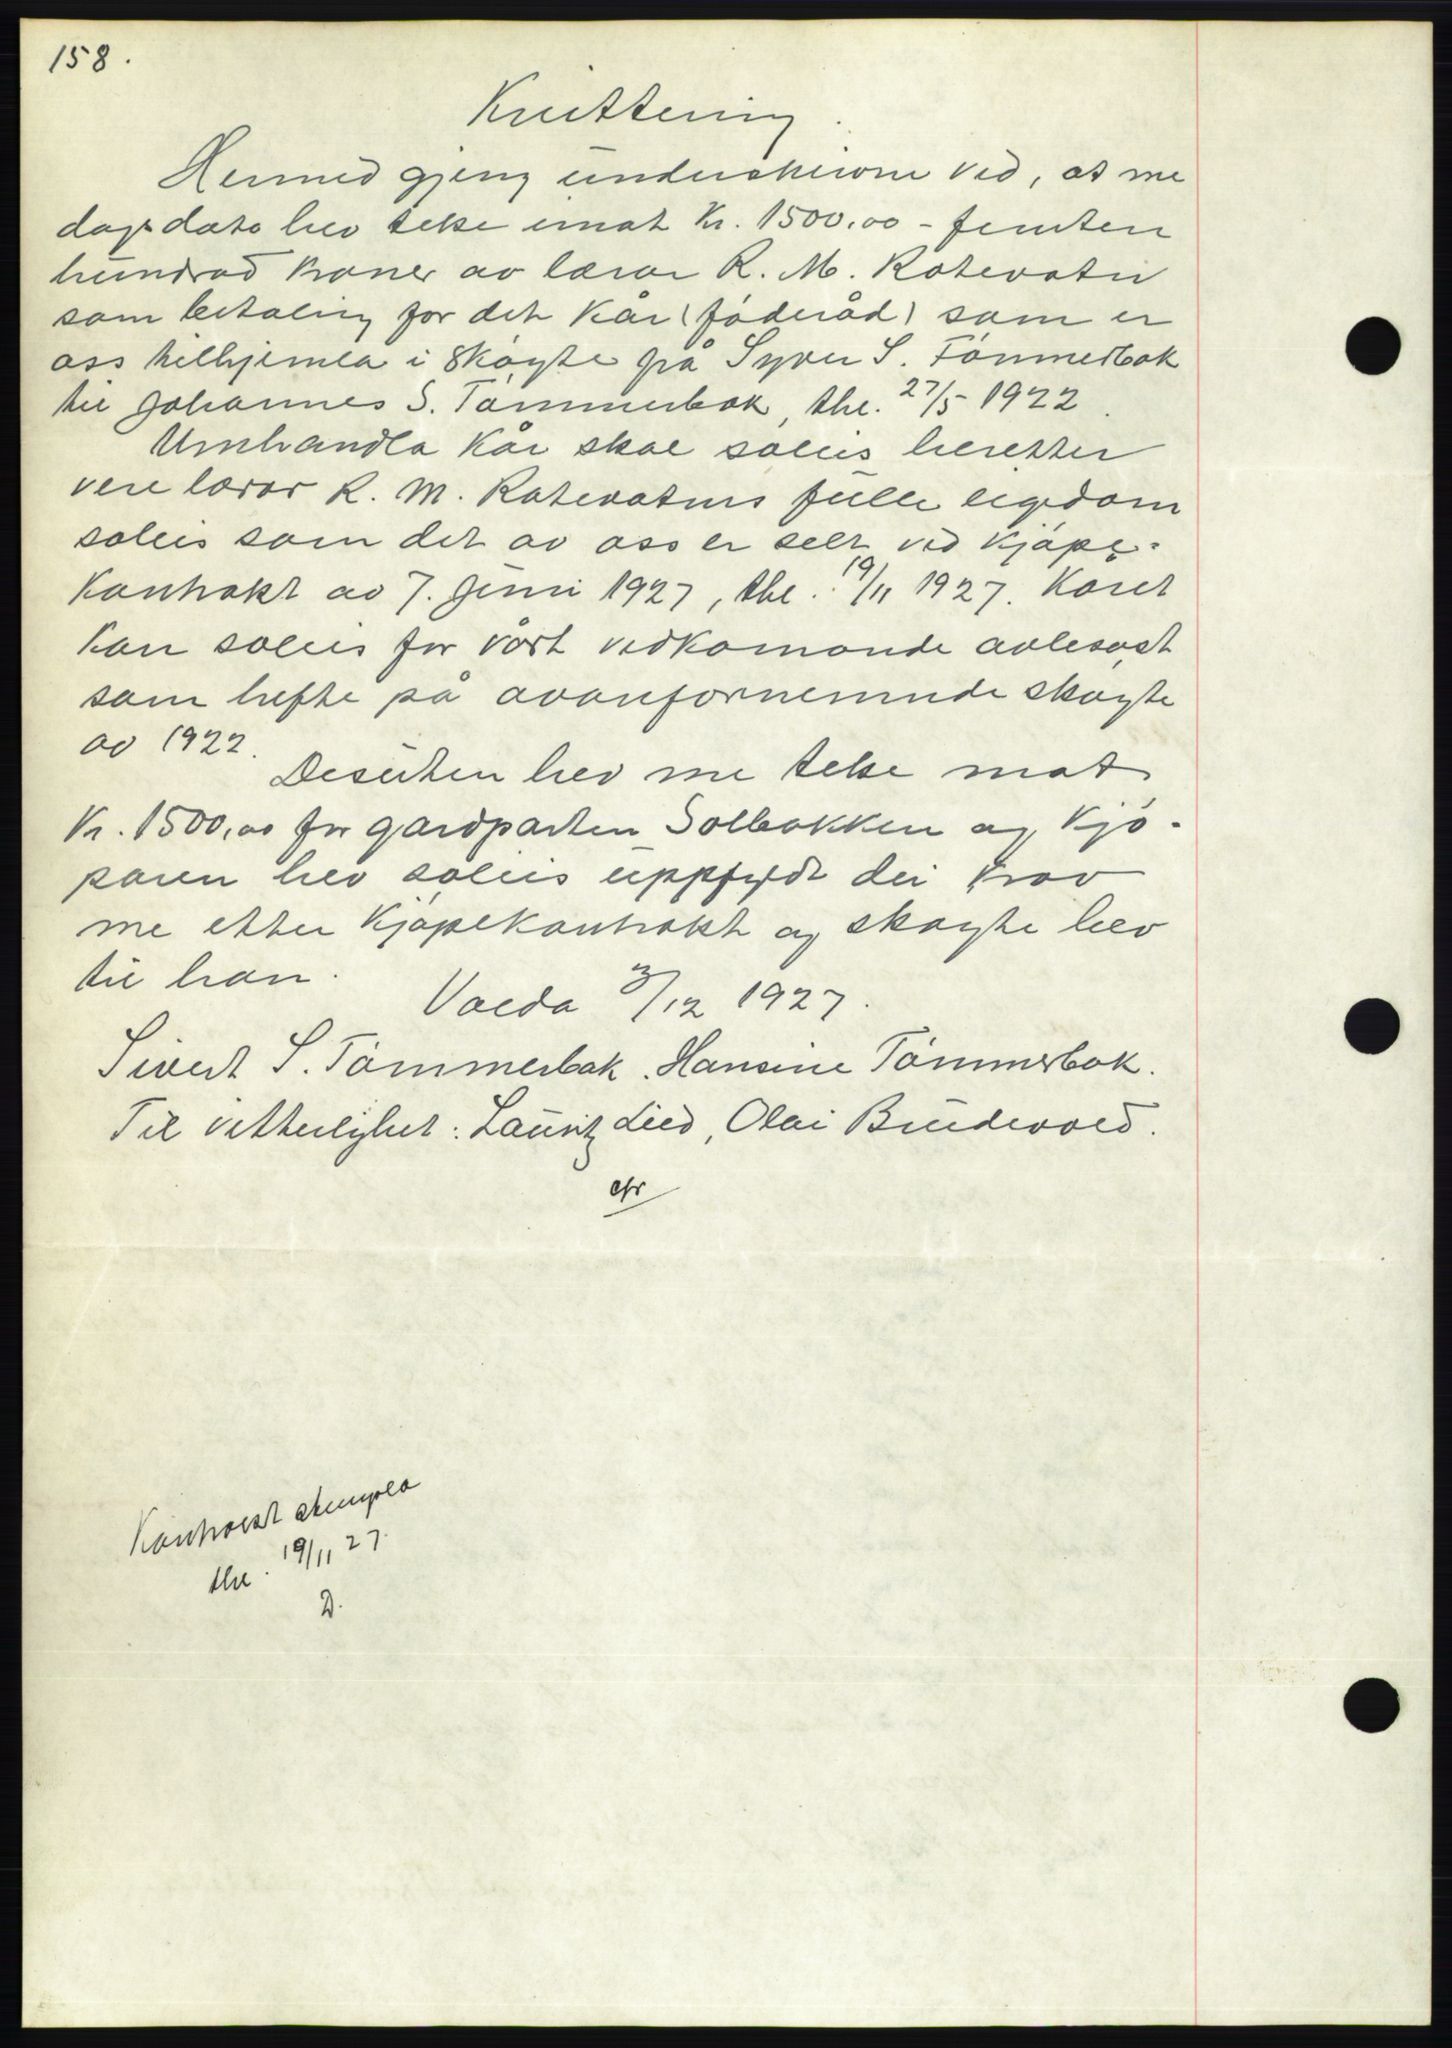 158.
Kvittering.
Hermed gjeng underskrivne ved, at me
dags dato hev teke imot Kr. 1500,00 - femten
hundrad kroner av lærar R. M. Rotevatn
som betaling for det kår (föderåd) som er
oss tilhjemla i sköyte frå Syver S. Tömmerbak
til Johannes S. Tömmerbak, thl. 27/5 1922.
Umhandla kår skal soleis heretter
vere lærar R. M. Rotevatns fulle eigedom
soleis som det av oss er selt ved kjöpe-
kontrakt av 7. juni 1927, thl. 19/11 1927. Kåret
kan soleis for vårt vedkomande avlesast
som hefte på ovanfornemnde sköyte
av 1922.
Desuten hev me teke mot
Kr. 1500,00 for gardparten Solbakken og kjö-
paren hev soleis uppfyldt dei krav
me etter kjöpekontrakt og sköyte hev
til han.
Volda 3/12 1927.
Sivert S. Tömmerbak. Hansine Tömmerbak.
Til vitterlighet: Lauritz Lied, Olai Brudevold.
cfr
Kontrakt stempla
thl. 19/11 27.
D.